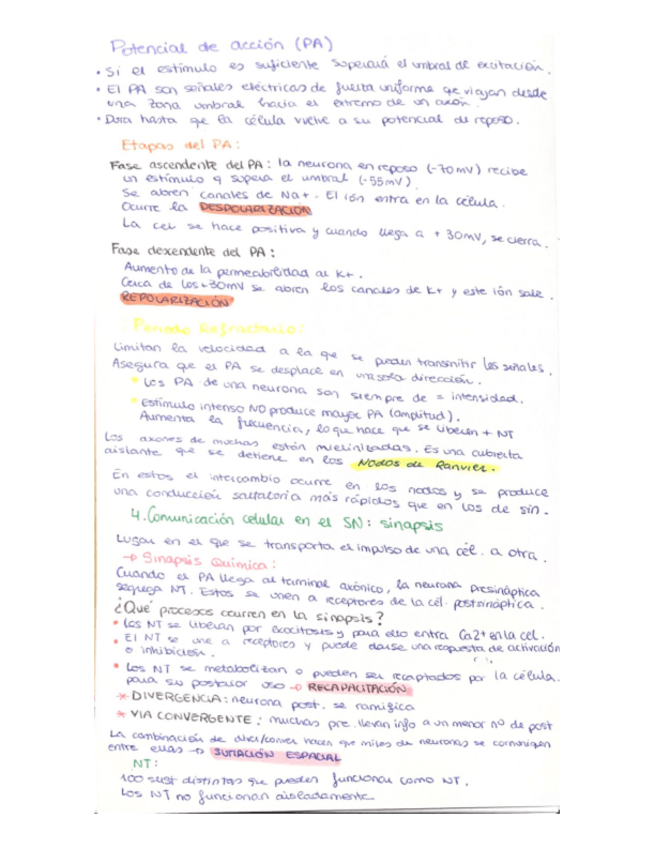 Potencial de acción (PA)
• Si el estímulo es suficiente superará el umbral de excitación.
• El PA son señales eléctricas de fuerza uniforme que viajan desde
una zona umbral hacia el extremo de un axón.
• Dura hasta que la célula vuelve a su potencial de reposo.
Etapas del PA:
Fase ascendente del PA: la neurona en reposo (-70mV) recibe
un estímulo q supera el umbral (-55mV).
Se abren canales de Na+. El ión entra en la célula.
Ocurre la DESPOLARIZACIÓN
La cel se hace positiva y cuando llega a +30mV, se cierra.
Fase dexendente del PA:
Aumento de la permeabilidad al K+.
Cerca de los +30mV se abren los canales de K+ y este ión sale.
REPOLARIZACIÓN
Periodo Refractario:
Limitan la velocidad a la que se pueden transmitir las señales.
Asegura que el PA se desplace en una sola dirección.
• Los PA de una neurona son siempre de = intensidad.
• Estímulo intenso NO produce mayor PA (amplitud).
Aumenta la frecuencia, lo que hace que se liberen + NT
Los axones de muchas están mielinizadas. Es una cubierta
aislante que se detiene en los Nodos de Ranvier.
En estos el intercambio ocurre en los nodos y se produce
una conducción saltatoria más rápidos que en los de sin.
4. Comunicación celular en el SN: sinapsis
Lugar en el que se transporta el impulso de una cél. a otra.
→ Sinapsis Química:
Cuando el PA llega al terminal axónico, la neurona presináptica
segrega NT. Estos se unen a receptores de la cél. postsináptica.
¿Qué procesos ocurren en la sinapsis?
• Los NT se liberan por exocitosis y para ello entra Ca2+ en la cel.
• El NT se une a receptores y puede darse una respuesta de activación
o inhibición.
• Los NT se metabolizan o pueden ser recaptados por la célula.
para su posterior uso → RECAPACITACIÓN
* DIVERGENCIA: neurona post. se ramifica
* VIA CONVERGENTE: muchas pre. llevan info a un menor nº de post
La combinación de diver/conver hacen que miles de neuronas se comuniquen
entre ellas → SUMACIÓN ESPACIAL
NT:
100 sust distintas que pueden funcionar como NT.
Los NT no funcionan aisladamente